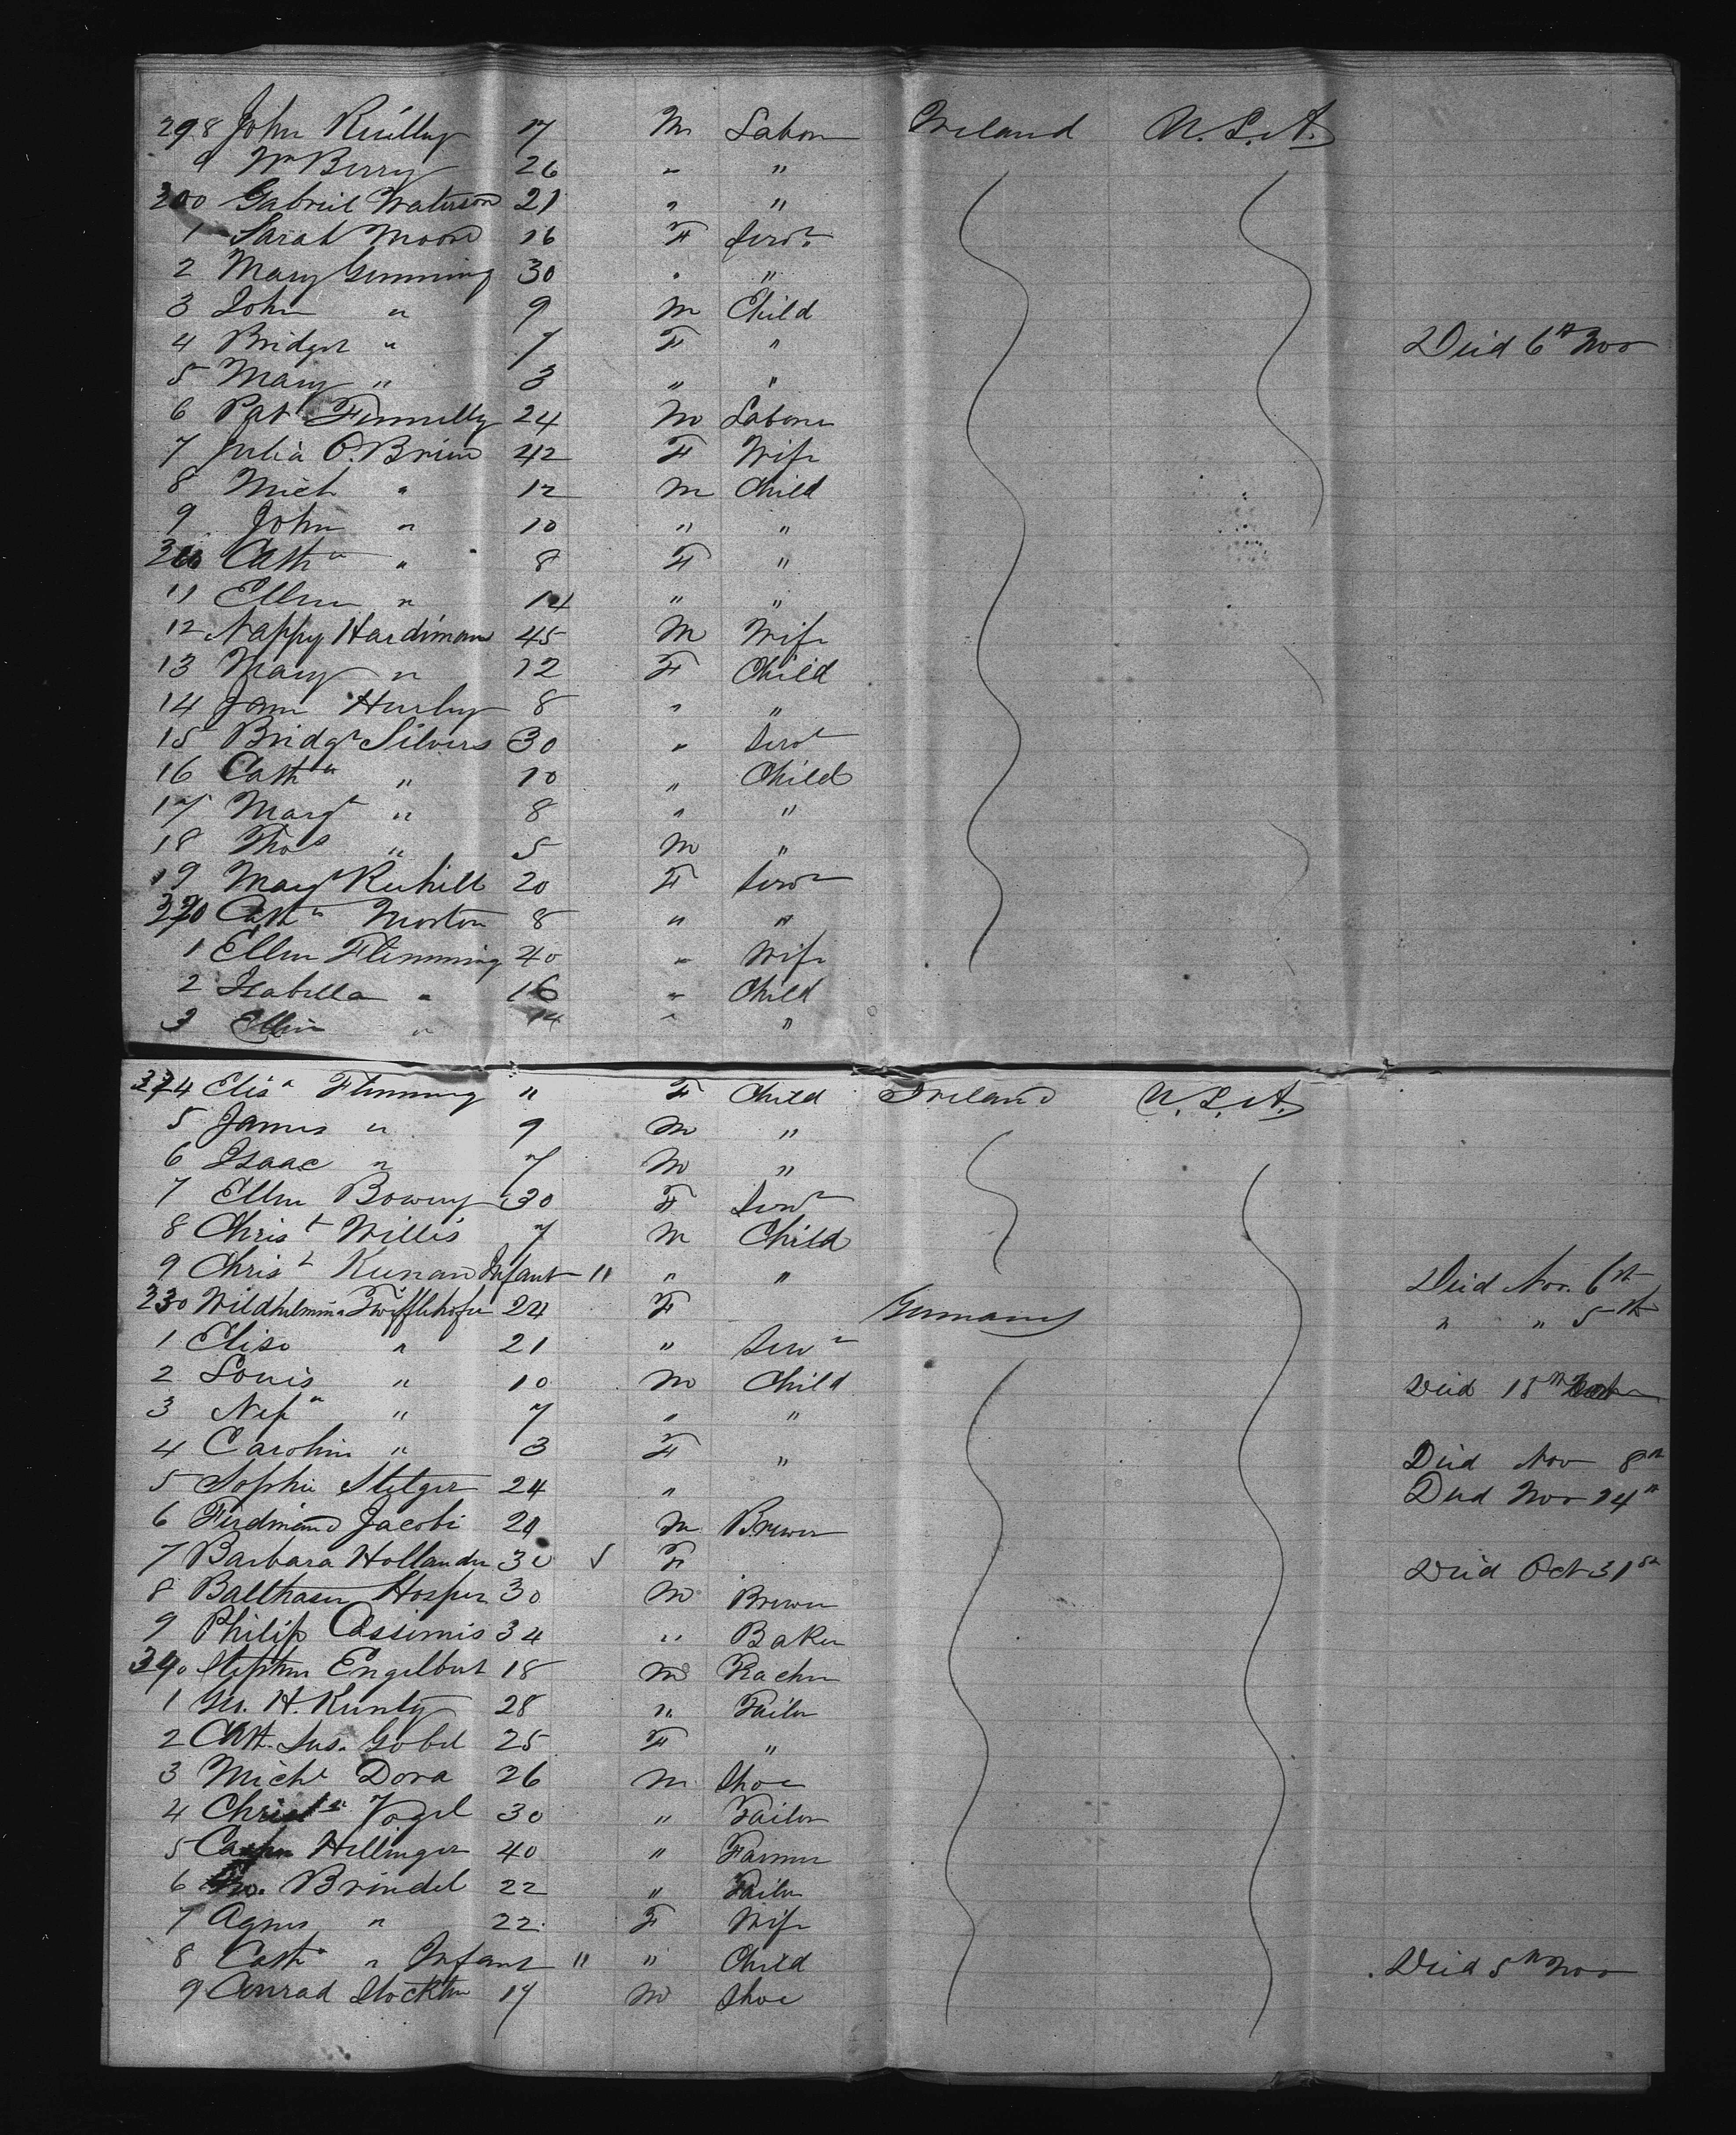 298 John Reilley 17 M Labor Ireland U.S.A.
9 Wm Berry 26 " "
300 Gabriel Waterson 21 " "
1 Sarah Moore 16 F Servt
2 Mary Gemming 30 " "
3 John " 9 M Child
4 Bridget " 7 F " Died 6th Nov
5 Mary " 3 " "
6 Pat Finnelly 24 M Labour
7 Julia O.Brien 42 F Wife
8 Mich " 12 M Child
9 John " 10 " "
Cathn " 8 F "
11 Ellen " 14 " "
12 Nappy Hardiman 45 M Wife
13 Mary " 12 F Child
14 Jane Hurley 8 " "
15 Bridgt Silvers 30 " Servt
16 Cathn " 10 " Child
17 Margt " 8 " "
18 Thos " 5 M "
19 Margt 20 F Servt
320 Cathn Morton 8 " "
1 Ellen Flemming 40 " Wife
2 Isabella " 16 " Child
3 Ellen " 14 " "
324 Elisa Flemming " F Child Ireland U.S.A.
5 James " 9 M "
6 Isaac " 7 M "
7 Ellen Bowery 30 F Servt
8 Christ Willis 7 M Child
9 Christ Keenan Infant " " " Died Nov. 6th
330 Wildhelmina 24 F Germany " " 5th
1 Elise " 21 " Servt
2 Louis " 10 M Child Died 18th
3 " 7 " "
4 Carolin " 3 F " Died Nov 8th
5 Sophie Steiger 24 " Died Nov 14th
6 Ferdinand Jacobi 24 M Brewer
7 Barbara Hollander 30 F Died Oct 31st
8 Balthasar Hosper 30 M Brewer
9 Philip Cassimis 34 " Baker
340 Stephen Engelbert 18 M
1 H. Kuntz 28 " Tailor
2 Cath. Sus. Gobel 25 F "
3 Michl Dora 26 M Shoe
4 Christn Vogel 30 " Tailor
5 Hellinger 40 " Farmer
6 Brindel 22 " Tailor
7 Agnes " 22 F Wife
8 Cathn " Infant " " Child Died 5th Nov
9 Conrad Stockthn 19 M Shoe